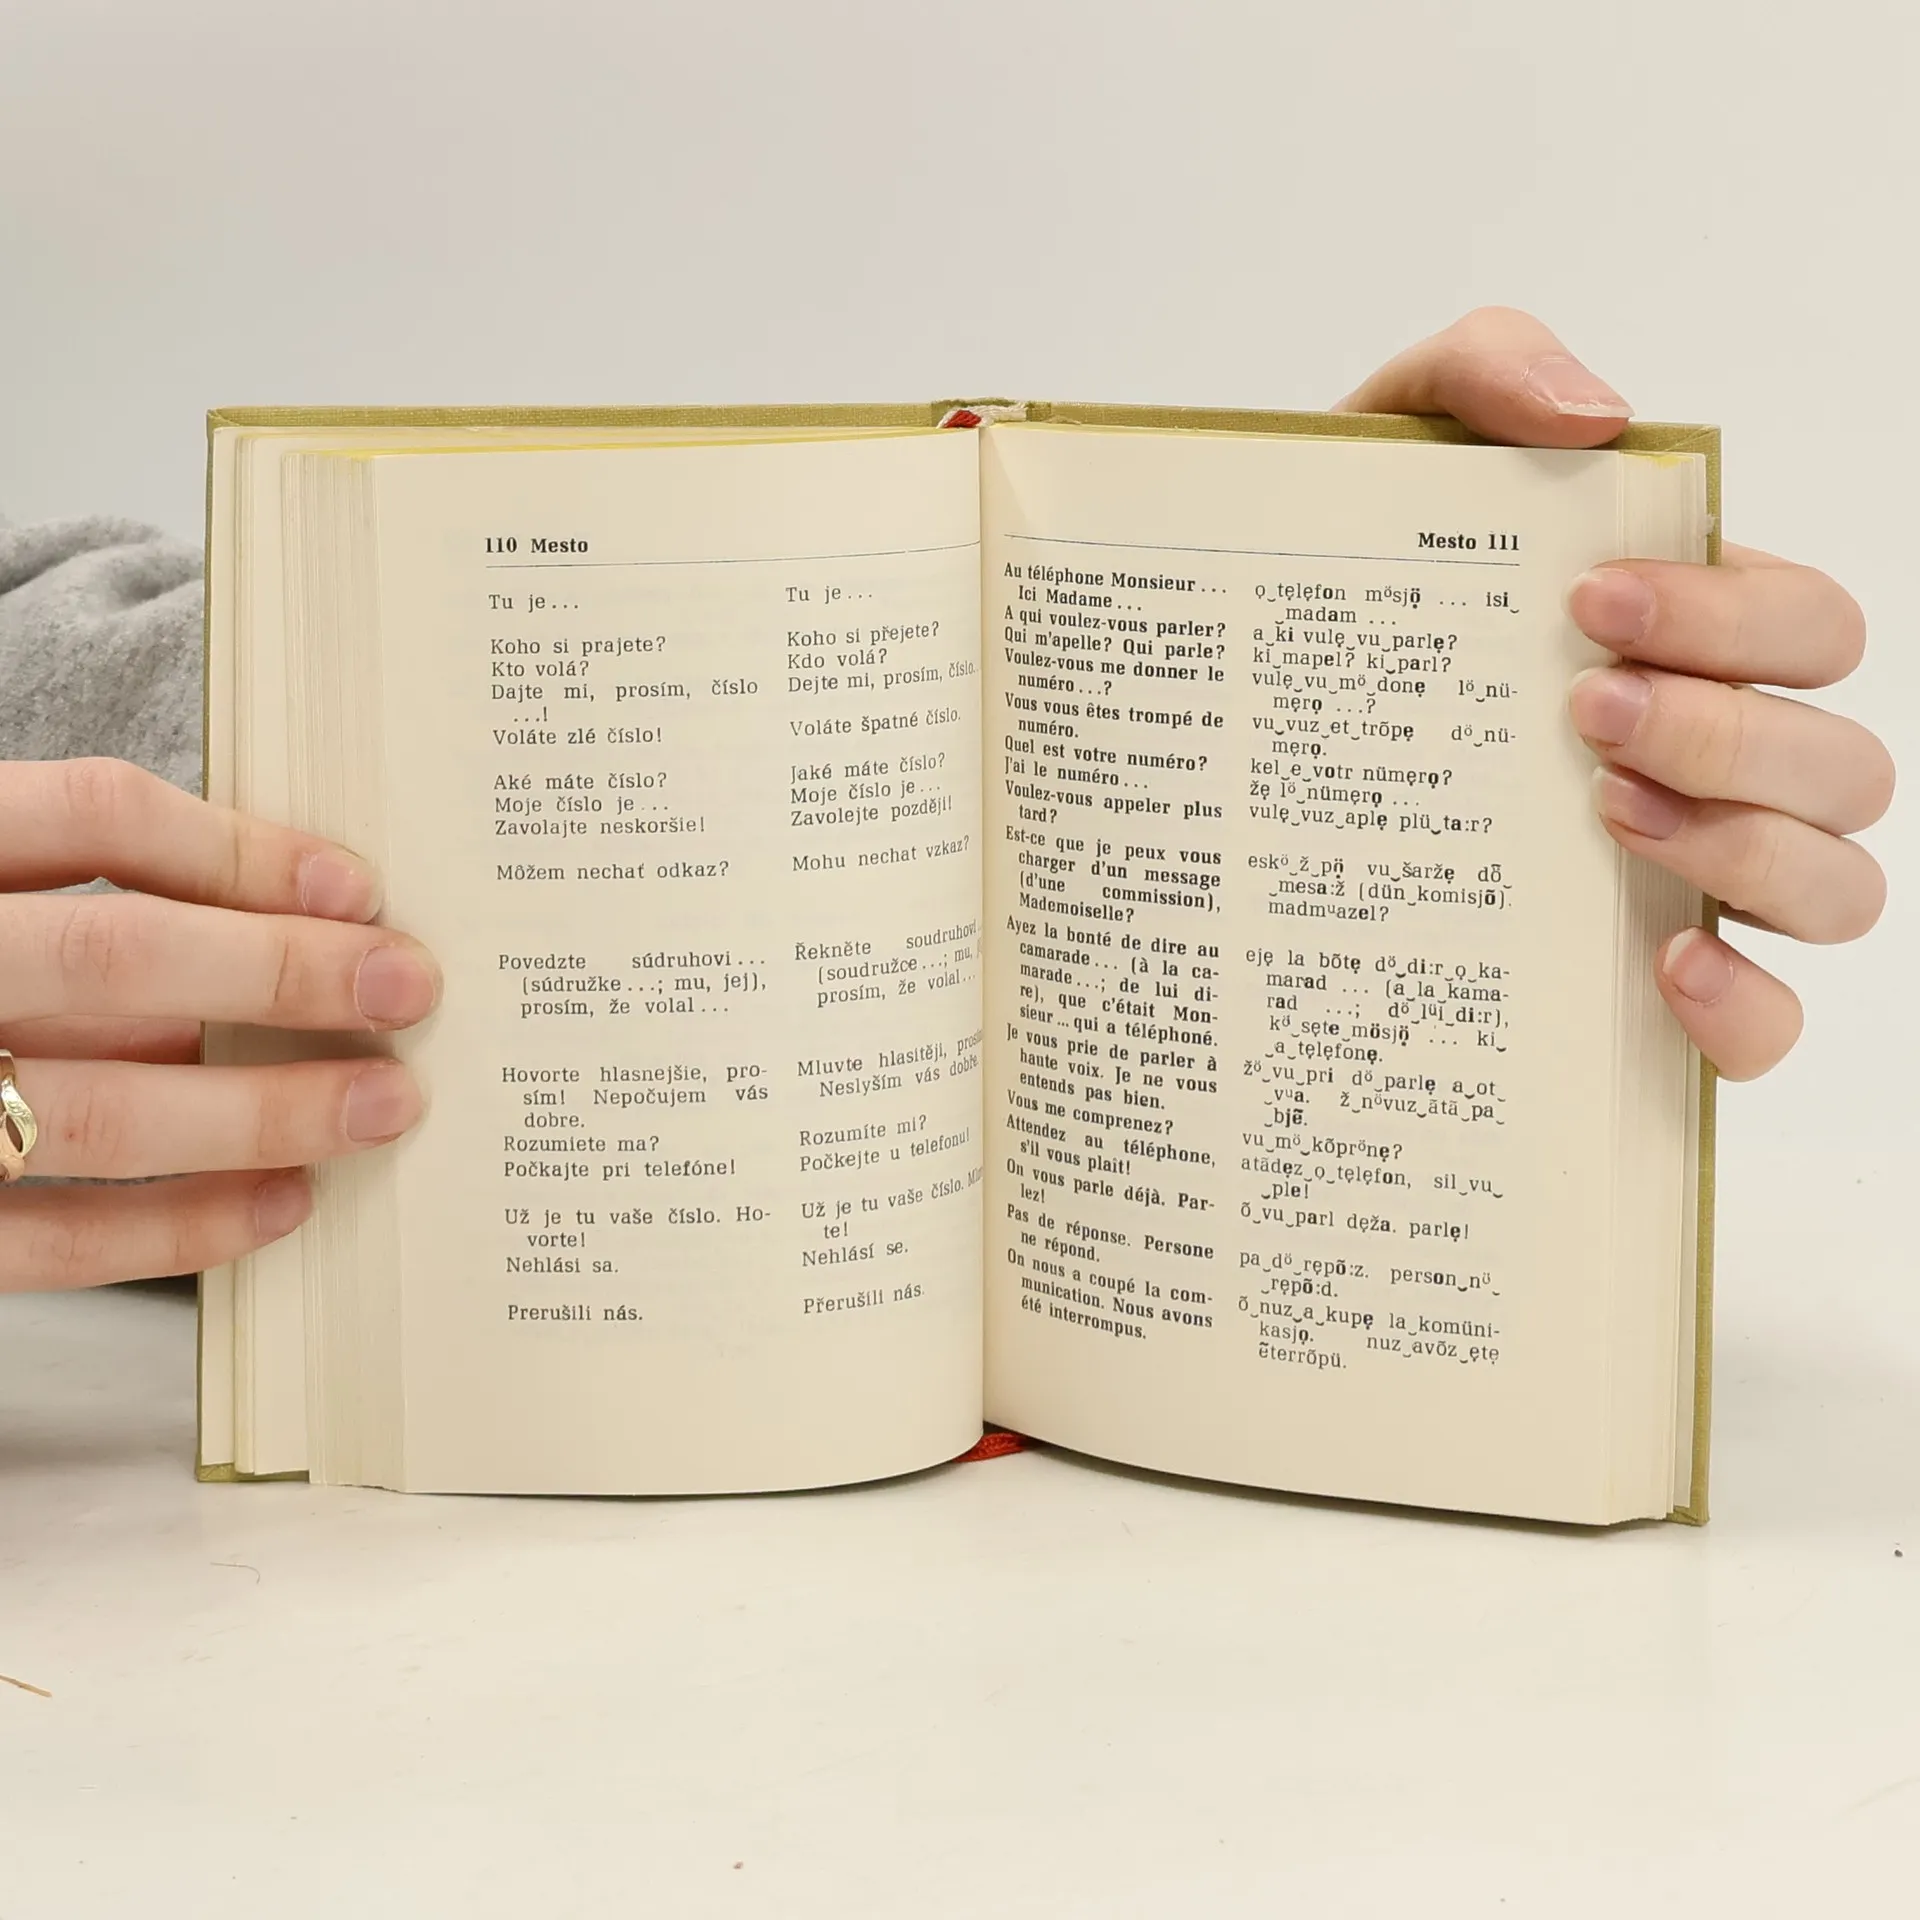 110 Mesto
Tu je...
Koho si prajete?
Kto volá?
Dajte mi, prosím, číslo
...!
Voláte zlé číslo!
Aké máte číslo?
Moje číslo je...
Zavolajte neskoršie!
Môžem nechať odkaz?
Povedzte súdruhovi...
(súdružke...; mu, jej),
prosím, že volal...
Hovorte hlasnejšie, pro-
sím! Nepočujem vás
dobre.
Rozumiete ma?
Počkajte pri telefóne!
Už je tu vaše číslo. Ho-
vorte!
Nehlási sa.
Prerušili nás.
Tu je...
Koho si přejete?
Kdo volá?
Dejte mi, prosím, číslo.
Voláte špatné číslo.
Jaké máte číslo?
Moje číslo je...
Zavolejte později!
Mohu nechat vzkaz?
Řekněte soudruhovi...
(soudružce...; mu,
prosím, že volal...
Mluvte hlasitěji,
Neslyším vás dobře.
Rozumíte mi?
Počkejte u telefonu!
Už je tu vaše číslo.
te!
Nehlásí se.
Přerušili nás.
Mesto 111
Au téléphone Monsieur...
Ici Madame...
A qui voulez-vous parler?
Qui m'apelle? Qui parle?
Voulez-vous me donner le
numéro...?
Vous vous êtes trompé de
numéro.
Quel est votre numéro?
J'ai le numéro...
Voulez-vous appeler plus
tard?
Est-ce que je peux vous
charger d'un message
(d'une commission),
Mademoiselle?
Ayez la bonté de dire au
camarade... (à la ca-
marade...; de lui di-
re), que c'était Mon-
sieur... qui a téléphoné.
Je vous prie de parler à
haute voix. Je ne vous
entends pas bien.
Vous me comprenez?
Attendez au téléphone,
s'il vous plaît!
On vous parle déjà. Par-
lez!
Pas de réponse. Persone
ne répond.
On nous a coupé la com-
munication. Nous avons
été interrompus.
ọ‿tẹlẹfon mösjọ̈ ... isi‿
‿madam ...
a‿ki vulẹ‿vu‿parlẹ?
ki‿mapel? ki‿parl?
vulẹ‿vu‿mö‿donẹ lö‿nü-
mẹrọ ...?
vu‿vuz‿et‿trõpẹ dö‿nü-
mẹrọ.
kel‿e‿votr nümẹrọ?
žẹ lö‿nümẹrọ ...
vulẹ‿vuz‿aplẹ plü‿ta:r?
eskö‿ž‿pọ̈ vu‿šaržẹ dȭ‿
‿mesa:ž (dün‿komisjõ),
madmᵘazel?
ejẹ la bõtẹ dö‿di:r‿ọ‿ka-
marad ... (a‿la‿kama-
rad ...; dö‿lüi‿di:r),
kö‿sẹte‿mösjọ̈ ... ki‿
‿a‿tẹlẹfonẹ.
žö‿vu‿pri dö‿parlẹ a‿ot‿
‿vᵘa. ž‿növuz‿ãtã‿pa‿
‿bjẽ.
vu‿mö‿kõprönẹ?
atãdẹz‿ọ‿tẹlẹfon, sil‿vu‿
‿ple!
õ‿vu‿parl dẹža. parlẹ!
pa‿dö‿rẹpõ:z. person‿nö‿
‿rẹpõ:d.
õ‿nuz‿a‿kupẹ la‿komüni-
kasjọ. nuz‿avõz‿ẹtẹ
ẽterrõpü.